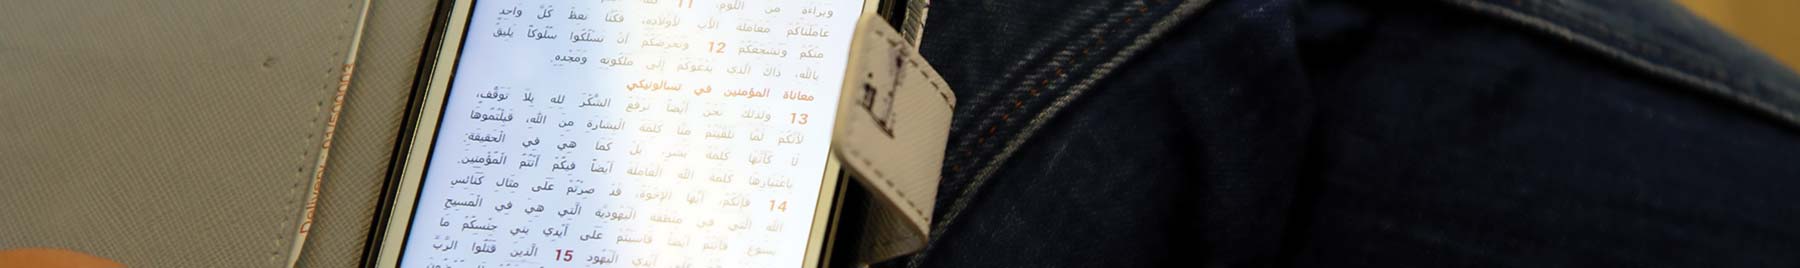 وبراءة من اللوم، 11 كما
عاملناكم معاملة الأب لأولاده، فكنا نعظ كل واحد
منكم ونشجعكم 12 ونحرضكم أن تسلكوا سلوكاً يليق
بالله، ذاك الذي يدعوكم إلى ملكوته ومجده.
معاناة المؤمنين في تسالونيكي
13 ولذلك نحن أيضا نرفع الشكر لله بلا توقف،
لأنكم لما تلقيتم منا كلمة البشارة من الله، قبلتموها
لا كأنها كلمة بشر، بل كما هي في الحقيقة:
باعتبارها كلمة الله العاملة أيضاً فيكم أنتم المؤمنين.
14 فإنكم، أيها الإخوة، قد صرتم على مثال كنائس
الله التي في منطقة اليهودية التي هي في المسيح
يسوع. فأنتم أيضا قاسيتم على أيدي بني جنسكم ما
على أيدي اليهود 15 الذين قتلوا الرب
Delivery: